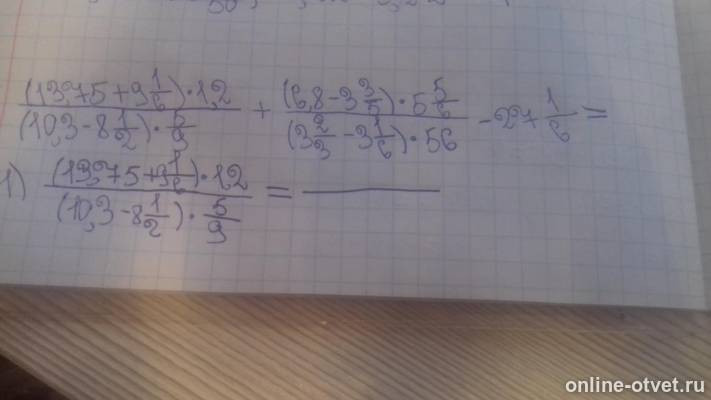 (13,75 + 9 1/6) · 1,2 / (10,3 - 8 1/2) · 5/9 + (6,8 - 3 3/5) · 5 5/6 / (3 2/3 - 3 1/6) · 56 - 27 1/6 =
1) (13,75 + 9 1/6) · 1,2 / (10,3 - 8 1/2) · 5/9 =
online-otvet.ru